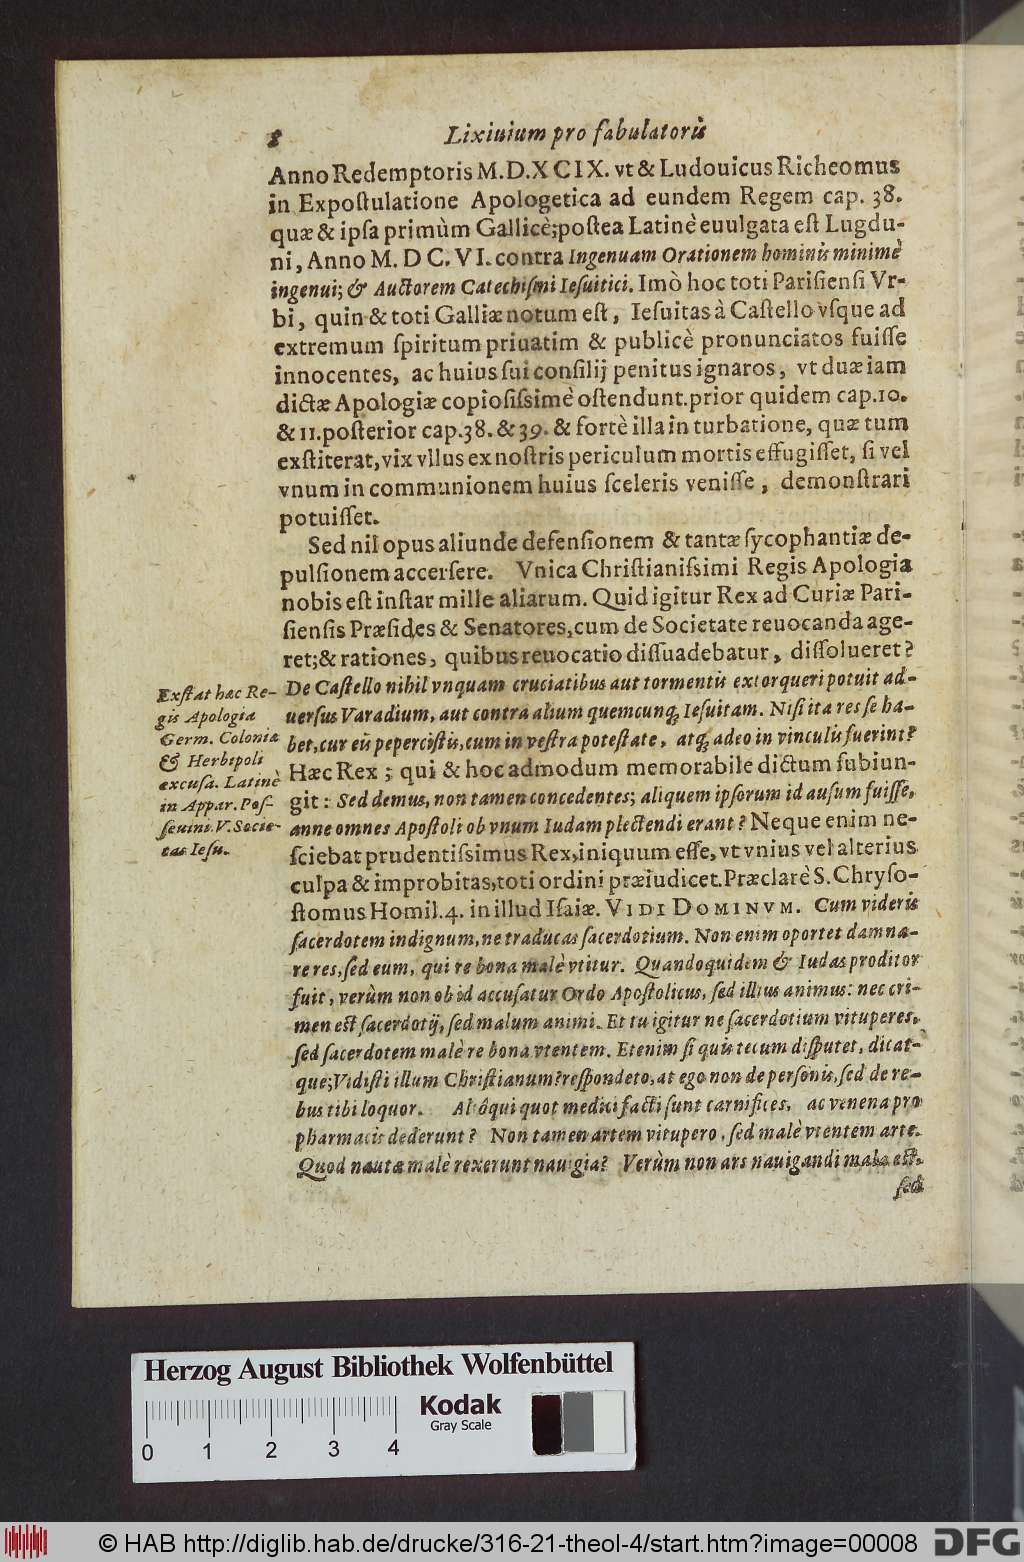 8 Lixiuium pro fabulatoris
Anno Redemptoris M.D.XCIX. vt & Ludouicus Richeomus
in Expoſtulatione Apologetica ad eundem Regem cap. 38.
quæ & ipſa primùm Gallicè; poſtea Latinè euulgata eſt Lugdu-
ni, Anno M. D C. VI. contra Ingenuam Orationem hominis minimè
ingenui; & Auctorem Catechiſmi Ieſuitici. Imò hoc toti Pariſienſi Vr-
bi, quin & toti Galliæ notum eſt, Ieſuitas à Caſtello vſque ad
extremum ſpiritum priuatim & publicè pronunciatos fuiſſe
innocentes, ac huius ſui conſilij penitus ignaros, vt duæ iam
dictæ Apologiæ copioſiſsimè oſtendunt. prior quidem cap. 10.
& 11. poſterior cap. 38. & 39. & fortè illa in turbatione, quæ tum
exſtiterat, vix vllus ex noſtris periculum mortis effugiſſet, ſi vel
vnum in communionem huius ſceleris veniſſe, demonſtrari
potuiſſet.
Sed nil opus aliunde defenſionem & tantæ ſycophantiæ de-
pulſionem accerſere. Vnica Chriſtianiſsimi Regis Apologia
nobis eſt inſtar mille aliarum. Quid igitur Rex ad Curiæ Pari-
ſienſis Præſides & Senatores, cum de Societate reuocanda age-
ret; & rationes, quibus reuocatio diſſuadebatur, diſſolueret?
De Caſtello nihil vnquam cruciatibus aut tormentis extorqueri potuit ad-
uerſus Varadium, aut contra alium quemcunq́; Ieſuitam. Niſi ita res ſe ha-
bet, cur eis pepercistis, cum in veſtra poteſtate, atq́; adeo in vinculis fuerint?
Hæc Rex; qui & hoc admodum memorabile dictum ſubiun-
git: Sed demus, non tamen concedentes; aliquem ipſorum id auſum fuiſſe,
anne omnes Apoſtoli ob vnum Iudam plectendi erant? Neque enim ne-
ſciebat prudentiſsimus Rex, iniquum eſſe, vt vnius vel alterius
culpa & improbitas, toti ordini præiudicet. Præclarè S. Chryſo-
ſtomus Homil. 4. in illud Iſaiæ. VIDI DOMINVM. Cum videris
ſacerdotem indignum, ne traducas ſacerdotium. Non enim oportet damna-
re res, ſed eum, qui re bona malè vtitur. Quandoquidem & Iudas proditor
fuit, verùm non ob id accuſatur Ordo Apoſtolicus, ſed illius animus: nec cri-
men eſt ſacerdotij, ſed malum animi. Et tu igitur ne ſacerdotium vituperes,
ſed ſacerdotem malè re bona vtentem. Etenim ſi quis tecum diſputet, dicat-
que; Vidiſti illum Chriſtianum? reſpondeto, at ego non de perſonis, ſed de re-
bus tibi loquor. Alioqui quot medici facti ſunt carnifices, ac venena pro
pharmacis dederunt? Non tamen artem vitupero, ſed malè vtentem arte.
Quod nautæ malè rexerunt nauigia? Verùm non ars nauigandi mala eſt,
ſed
Exſtat hæc Re-
gis Apologia
Germ. Coloniæ
& Herbipoli
excuſa. Latinè
in Appar. Poſ-
ſeuini. V. Socie-
tas Ieſu.
Herzog August Bibliothek Wolfenbüttel
Kodak
Gray Scale
0 1 2 3 4
© HAB http://diglib.hab.de/drucke/316-21-theol-4/start.htm?image=00008
DFG